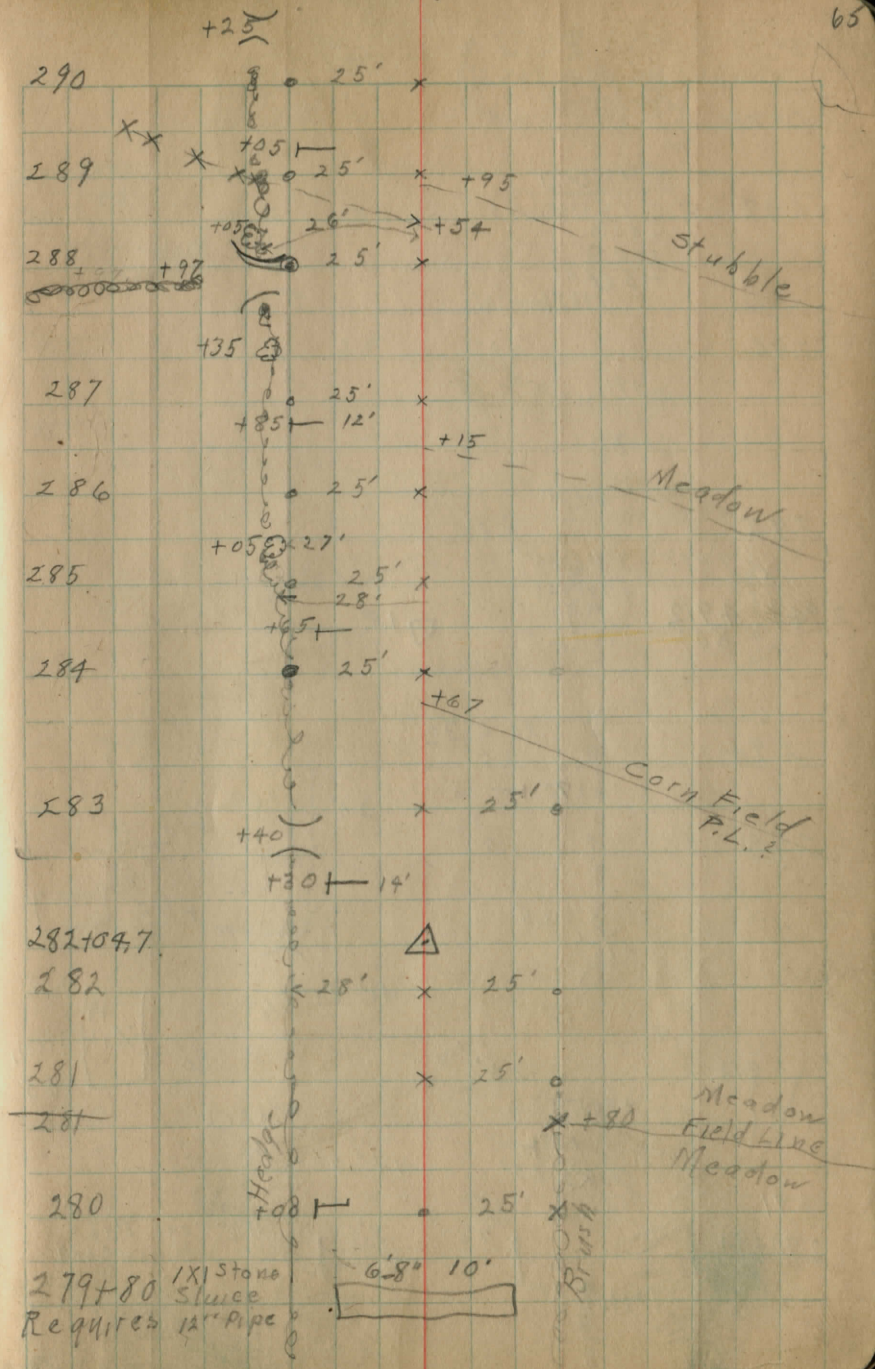 65
+25
290 25'
+05
289 25' +95
+05 26' +54
288 25' Stubble
+97
+35
287 25'
+85 12'
+15
286 25' Meadow
+05 27'
285 25'
28'
+65
284 25'
+67
Corn Field
283 25' P.L.?
+40
+30 14'
282+04.7
282 28' 25'
281 25'
Meadow
281 +80 Field Line
Meadow
Hedge
280 +00 25'
Brush
6'8" 10'
279+80 1X1 Stone
Sluice
Requires 12" Pipe